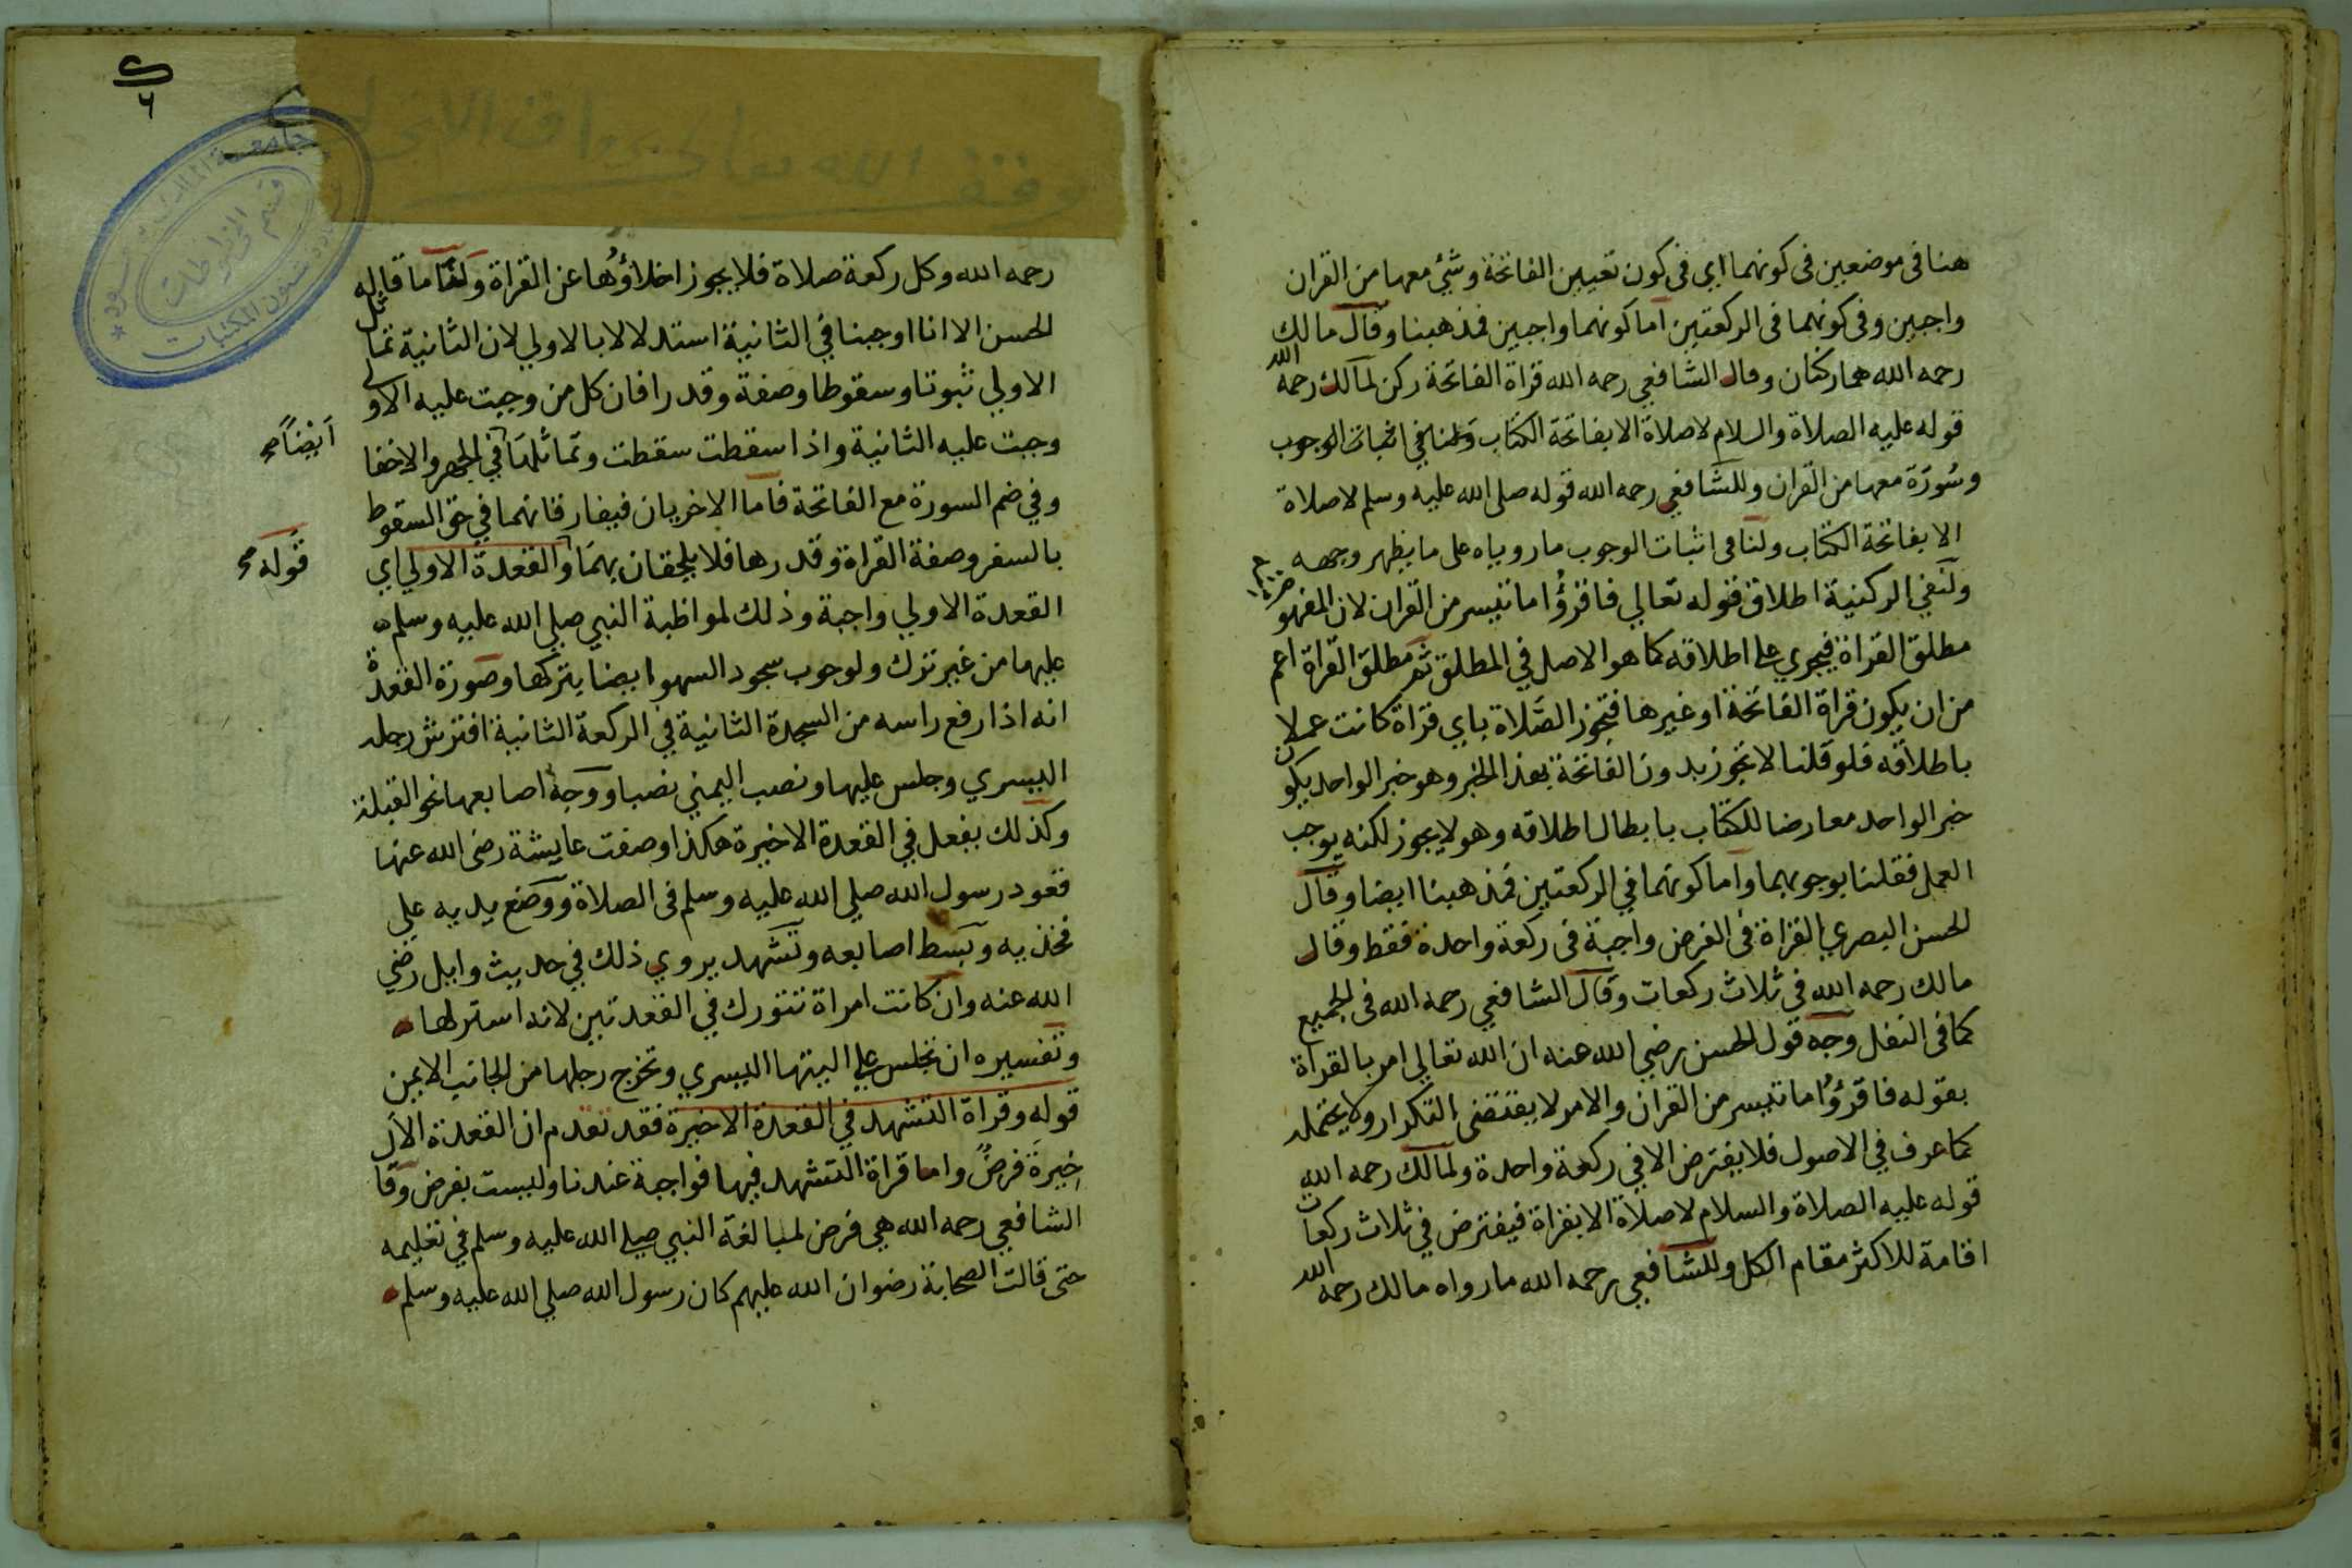 هنا في موضعين في كونهما اي في كون تعيين الفاتحة وشئ معها من القران
واجبين وفي كونهما في الركعتين اما كونهما واجبين فمذهبنا وقال مالك
رحمه الله هما ركنان وقال الشافعي رحمه الله قراة الفاتحة ركن لمالك رحمه الله
قوله عليه الصلاة والسلام لا صلاة الا بفاتحة الكتاب ولنا في اثبات الوجوب
وسورة معها من القران وللشافعي رحمه الله قوله صلى الله عليه وسلم لا صلاة
الا بفاتحة الكتاب ولنا في اثبات الوجوب ما روياه على ما يظهر وجهه
ولنفي الركنية اطلاق قوله تعالي فاقرؤا ما تيسر من القران لان المفهو
مطلق القراة فيجري على اطلاقه كما هو الاصل في المطلق ثم مطلق القراة اعم
من ان يكون قراة الفاتحة او غيرها فتجوز الصلاة باي قراة كانت عملا
باطلاقه فلو قلنا لا تجوز بدون الفاتحة بهذا الخبر وهو خبر الواحد يكون
خبر الواحد معارضا للكتاب بابطال اطلاقه وهو لا يجوز لكنه يوجب
العمل فقلنا بوجوبهما واما كونهما في الركعتين فمذهبنا ايضا وقال
الحسن البصري القراة في الفرض واجبة في ركعة واحدة فقط وقال
مالك رحمه الله في ثلاث ركعات وقال الشافعي رحمه الله في الجميع
كما في النفل وجه قول الحسن رضي الله عنه ان الله تعالي امر بالقراة
بقوله فاقرؤا ما تيسر من القران والامر لا يقتضى التكرار ولا يحتمله
كما عرف في الاصول فلا يفترض الا في ركعة واحدة ولمالك رحمه الله
قوله عليه الصلاة والسلام لا صلاة الا بقراة فيفترض في ثلاث ركعات
اقامة للاكثر مقام الكل وللشافعي رحمه الله ما رواه مالك رحمه الله
٦
رحمه الله وكل ركعة صلاة فلا يجوز اخلاؤها عن القراة ولنا ما قاله
الحسن الا انا اوجبنا في الثانية استدلالا بالاولي لان الثانية تماثل
الاولي ثبوتا وسقوطا وصفة وقدرا فان كل من وجبت عليه الاولي
وجبت عليه الثانية واذا سقطت سقطت وتماثلها في الجهر والاخفا
أيضًا صح
وفي ضم السورة مع الفاتحة فاما الاخريان فيفارقانهما في حق السقوط
بالسفر وصفة القراة وقدرها فلا يلحقان بهما والقعدة الاولي اي
قوله صح
القعدة الاولي واجبة وذلك لمواظبة النبي صلي الله عليه وسلم
عليها من غير ترك ولوجوب سجود السهو ايضا بتركها وصورة القعدة
انه اذا رفع راسه من السجدة الثانية في الركعة الثانية افترش رجله
اليسري وجلس عليها ونصب اليمني نصبا ووجه اصابعها نحو القبلة
وكذلك يفعل في القعدة الاخيرة هكذا وصفت عايشة رضى الله عنها
قعود رسول الله صلي الله عليه وسلم في الصلاة ووضع يديه علي
فخذيه وبسط اصابعه وتشهد يروي ذلك في حديث وايل رضي
الله عنه وان كانت امراة تتورك في القعدتين لانه استر لها
وتفسيره ان تجلس على اليتها اليسري وتخرج رجلها من الجانب الايمن
قوله وقراة التشهد في القعدة الاخيرة فقد تقدم ان القعدة الا
خيرة فرض واما قراة التشهد فيها فواجبة عندنا وليست بفرض وقا
الشافعي رحمه الله هي فرض لمبالغة النبي صلي الله عليه وسلم في تعليمه
حتى قالت الصحابة رضوان الله عليهم كان رسول الله صلي الله عليه وسلم